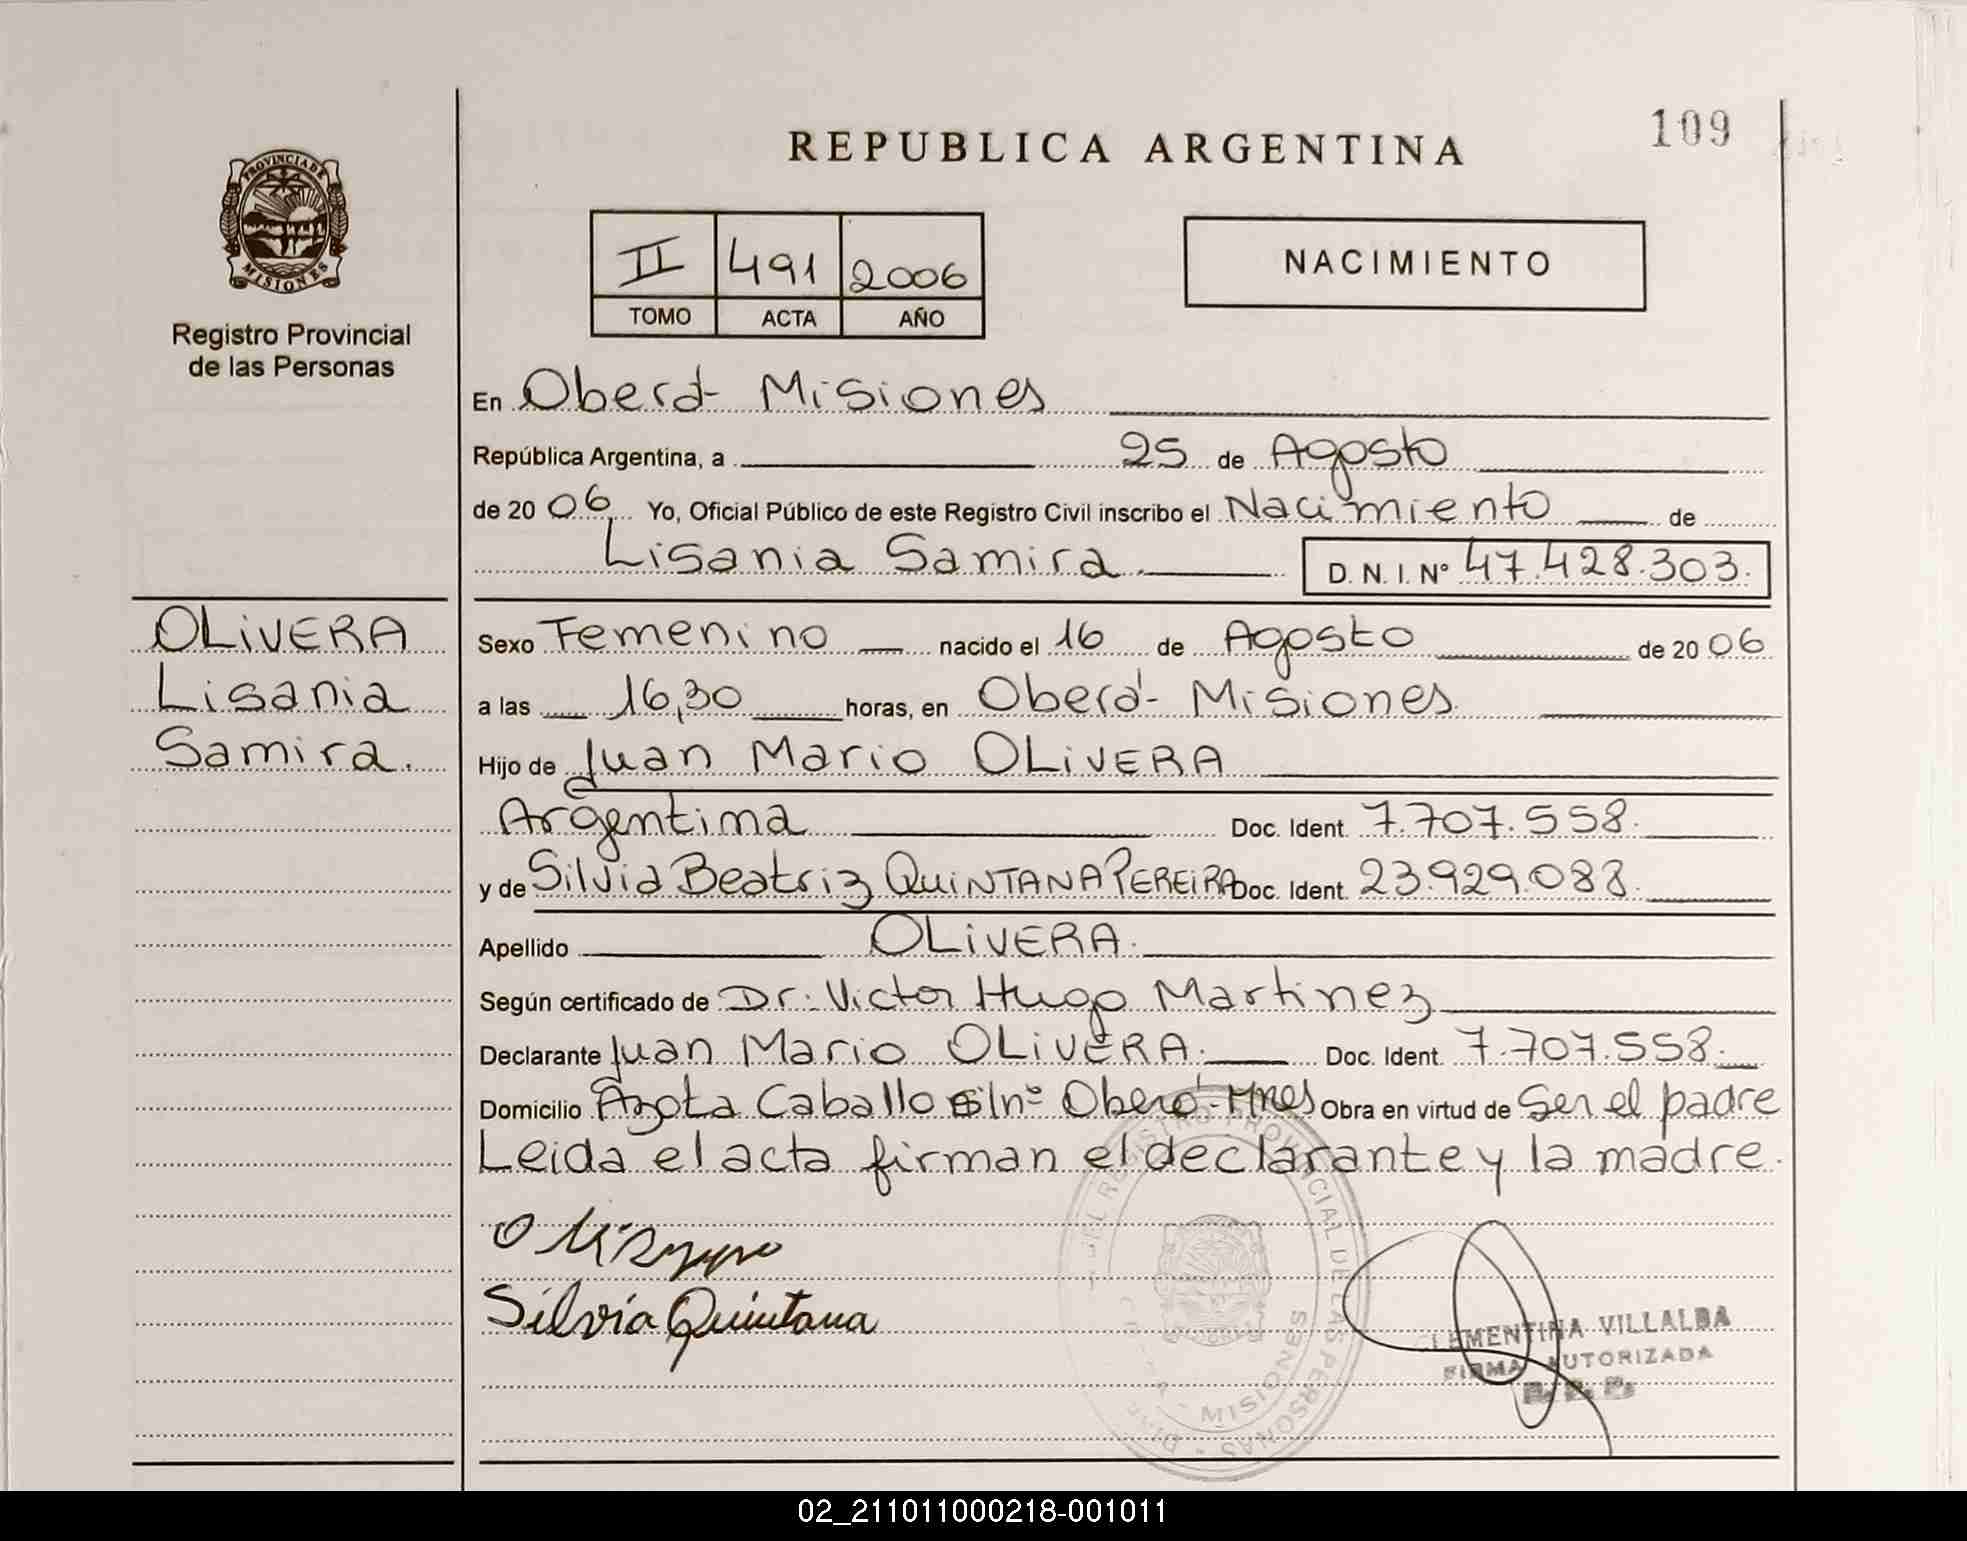 REPUBLICA ARGENTINA
109
PROVINCIA DE
MISIONES
Registro Provincial
de las Personas
II 491 2006
TOMO ACTA AÑO
NACIMIENTO
En Oberá- Misiones
República Argentina, a 25 de Agosto
de 20 06 Yo, Oficial Público de este Registro Civil inscribo el Nacimiento de
Lisania Samira. D. N. I. Nº 47.428.303.
OLiVERA
Lisania
Samira.
Sexo Femenino nacido el 16 de Agosto de 20 06
a las 16,30 horas, en Oberá- Misiones
Hijo de Juan Mario OLiVERA
Argentima Doc. Ident. 7.707.558.
y de Silvia Beatriz QUiNTANA PEREiRA Doc. Ident. 23.929.088.
Apellido OLiVERA.
Según certificado de Dr. Victor Hugo Martinez
Declarante Juan Mario OLiVERA. Doc. Ident. 7.707.558.
Domicilio Azota Caballo s/nº Oberá-Mnes Obra en virtud de Ser el padre
Leida el acta firman el declarante y la madre.
Silvia Quintana
DEL REGISTRO PROVINCIAL DE LAS PERSONAS
MISIONES
CLEMENTINA VILLALBA
FIRMA AUTORIZADA
02_211011000218-001011